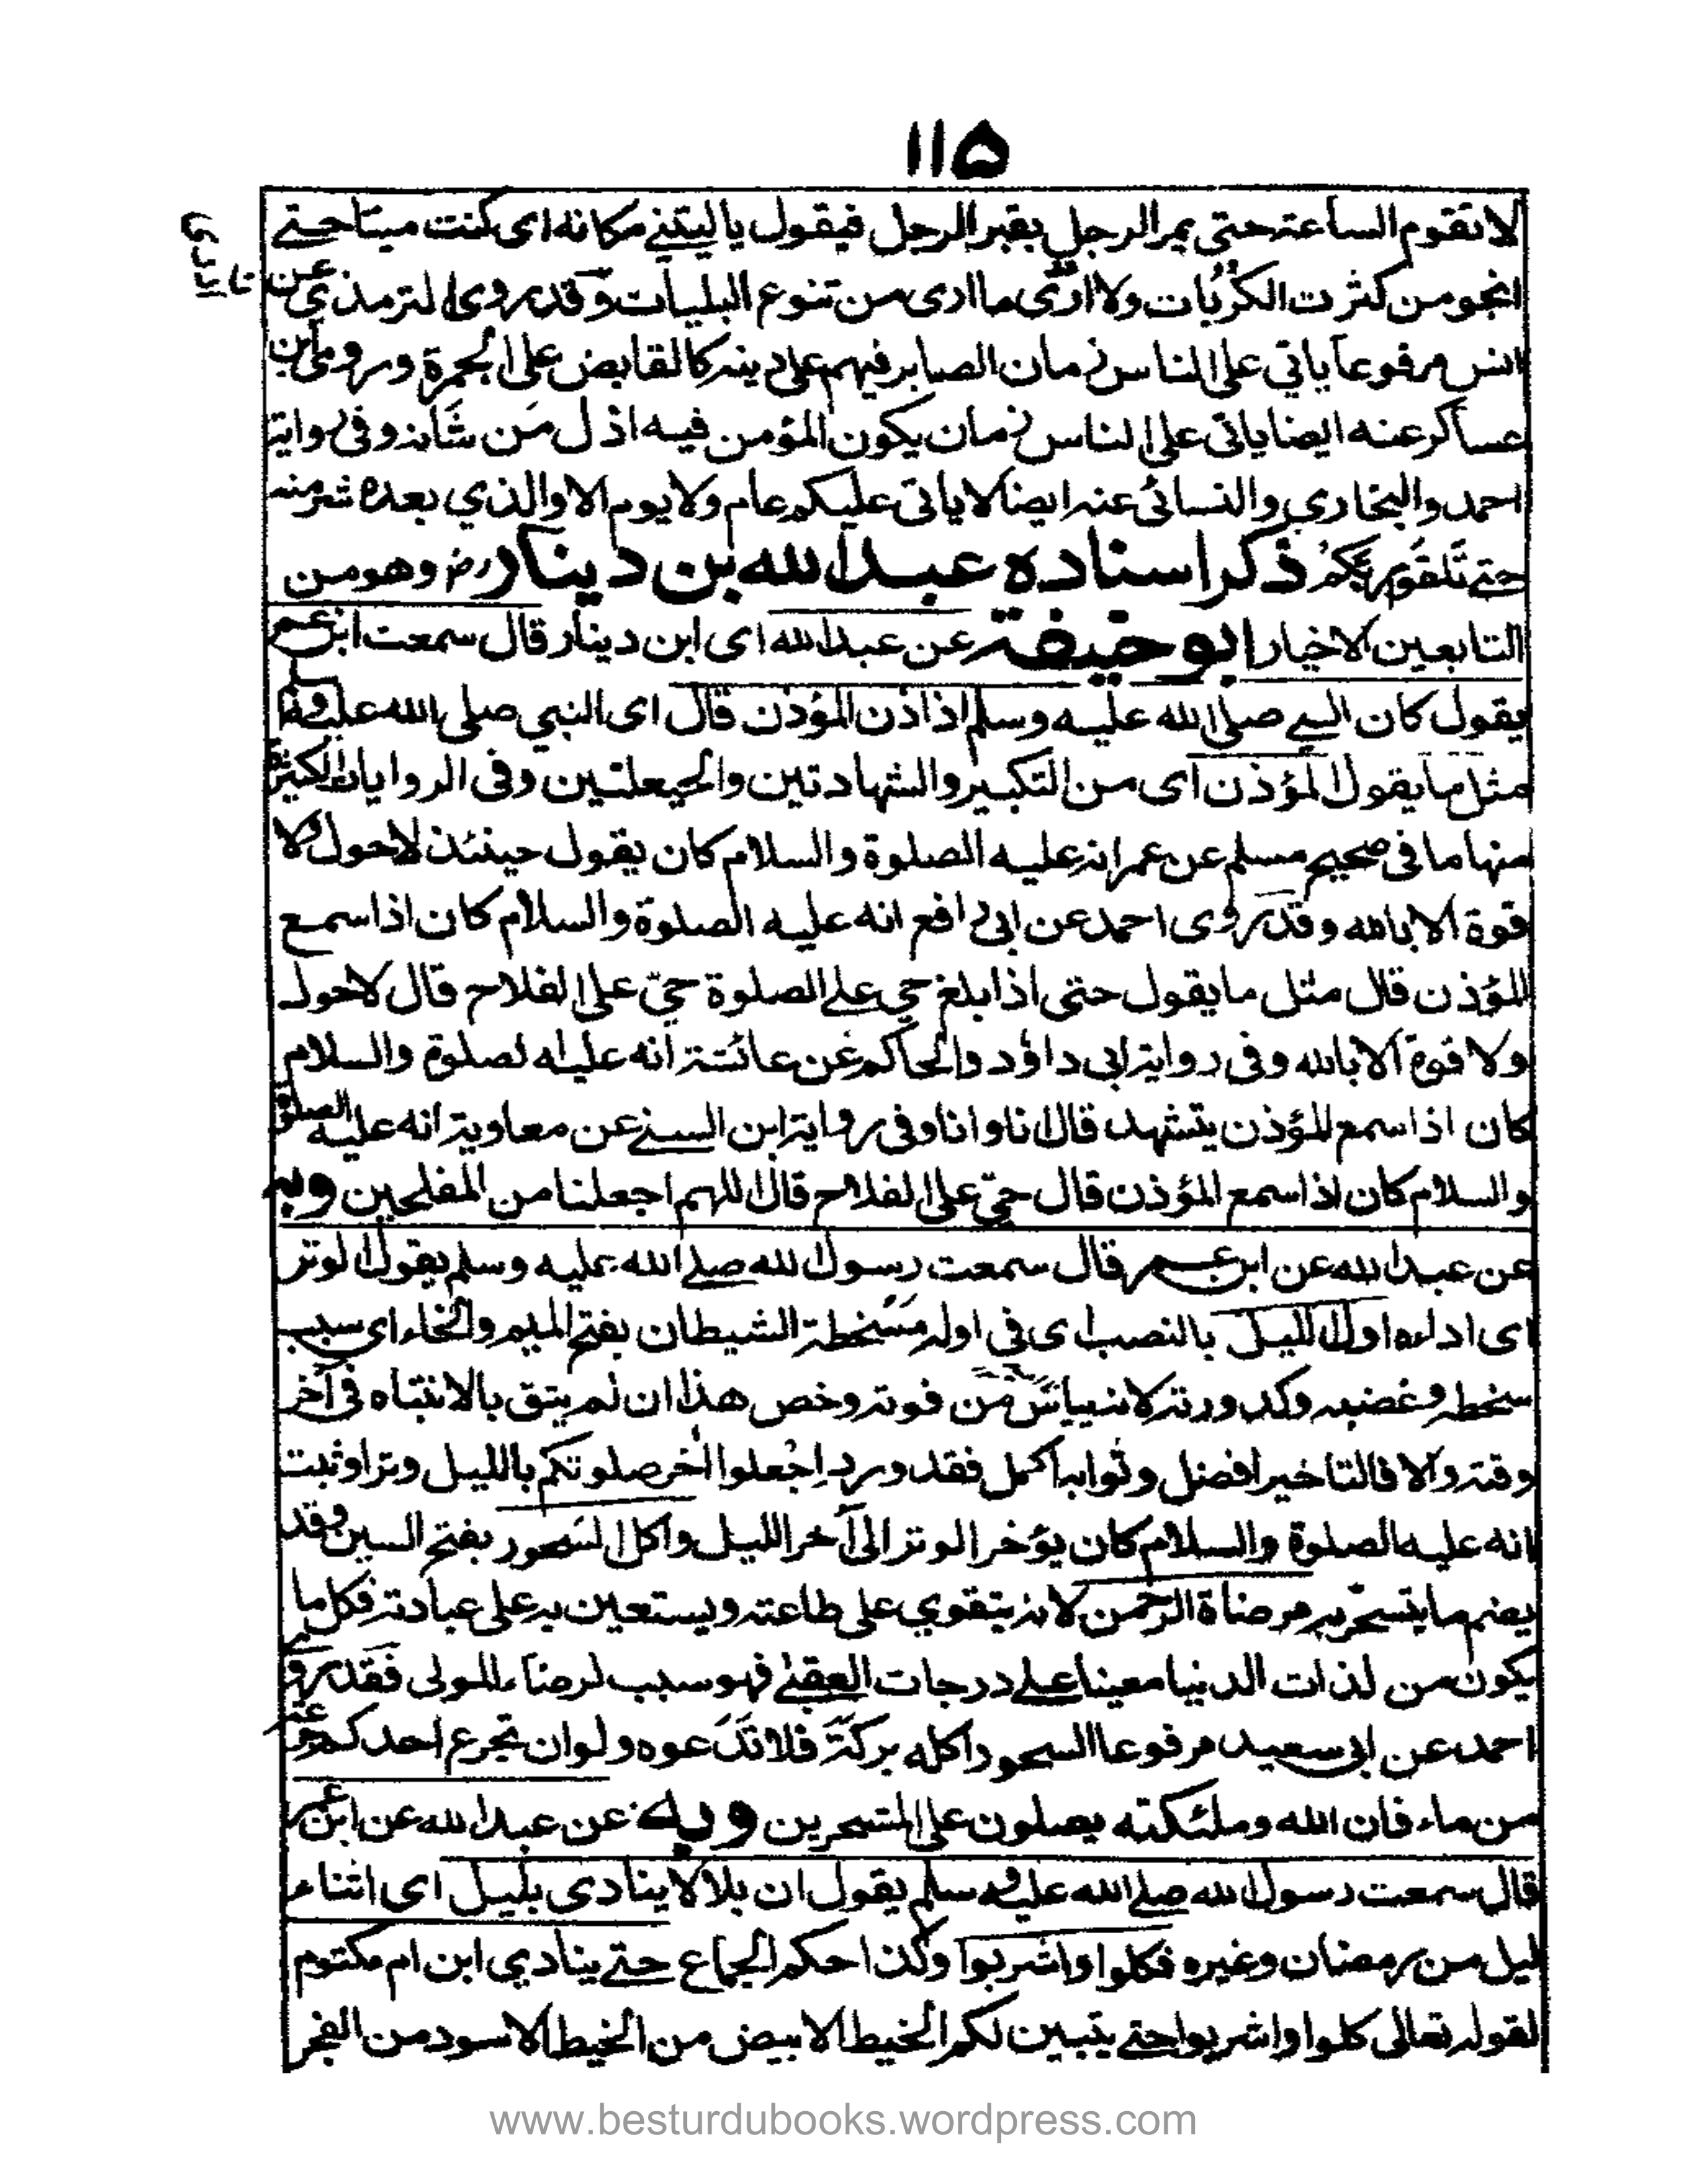 ١١٥
لا تقوم الساعة حتى يمر الرجل بقبر الرجل فيقول يا ليتني مكانه اى كنت ميتا حتے
انجو من كثرت الكُرُبات ولا ارٰى ما ارى من تنوع البليات وقد روى الترمذي عن
انس مرفوعا ياتي على الناس زمان الصابر فيهم على دينه كالقابض على الجمرة وروى ابن
عساكر عنه ايضا ياتى على الناس زمان يكون المؤمن فيه اذل من شانه وفى رواية
احمد والبخاري والنسائى عنه ايضا لا ياتى عليكم عام ولا يوم الا والذي بعده شر منه
حتے تلقوا ربكم ذكر اسناده عبد الله بن دينار رض وهو من
التابعين الاخيار ابو حنيفة عن عبد الله اى ابن دينار قال سمعت ابن عمر
يقول كان النبي صلى الله عليه وسلم اذا اذن المؤذن قال اى النبي صلى الله عليه وسلم
مثل ما يقول المؤذن اى من التكبير والشهادتين والحيعلتين وفى الروايات الكثيرة
منها ما فى صحيح مسلم عن عمر انه عليه الصلوة والسلام كان يقول حينئذ لا حول ولا
قوة الا بالله وقد روى احمد عن ابى رافع انه عليه الصلوة والسلام كان اذا سمع
المؤذن قال مثل ما يقول حتى اذا بلغ حي على الصلوة حيّ على الفلاح قال لا حول
ولا قوة الا بالله وفى رواية ابى داؤد والحاكم عن عائشة انه عليه الصلوة والسلام
كان اذا سمع المؤذن يتشهد قال انا وانا وفى رواية ابن السنے عن معاوية انه عليه الصلوة
والسلام كان اذا سمع المؤذن قال حيّ على الفلاح قال اللهم اجعلنا من المفلحين وبه
عن عبد الله عن ابن عمر قال سمعت رسول الله صلے الله عليه وسلم يقول الوتر
اى اداءه اول الليل بالنصب اى فى اوله مَسْخطة الشيطان بفتح الميم والخاء اى سبب
سخطه وغضبه وكدورته لانه يياس من فوته وخص هذا ان لم يثق بالانتباه فى آخر
وقته والا فالتاخير افضل وثوابه اكمل فقد ورد اجعلوا آخر صلوتكم بالليل وترا وثبت
انه عليه الصلوة والسلام كان يؤخر الوتر الى آخر الليل واكل السَحور بفتح السين وقد
يضم ما يتسحّر به مرضاة الرحمن لانه يتقوي على طاعته ويستعين به على عبادته فكل ما
يكون من لذات الدنيا معينا علے درجات العقبٰے فهو سبب لرضاء المولى فقد روى
احمد عن ابى سعيد مرفوعا السحور اكله بركة فلا تَدَعوه ولو ان تجرع احدكم جرعة
من ماء فان الله وملئكته يصلون على المتسحرين وبه عن عبد الله عن ابن عمر
قال سمعت رسول الله صلے الله عليه وسلم يقول ان بلالا ينادى بليل اى اثناء
ليل من رمضان وغيره فكلوا واشربوا وكذا حكم الجماع حتے ينادي ابن ام مكتوم
لقوله تعالى كلوا واشربوا حتے يتبين لكم الخيط الابيض من الخيط الاسود من الفجر
www.besturdubooks.wordpress.com